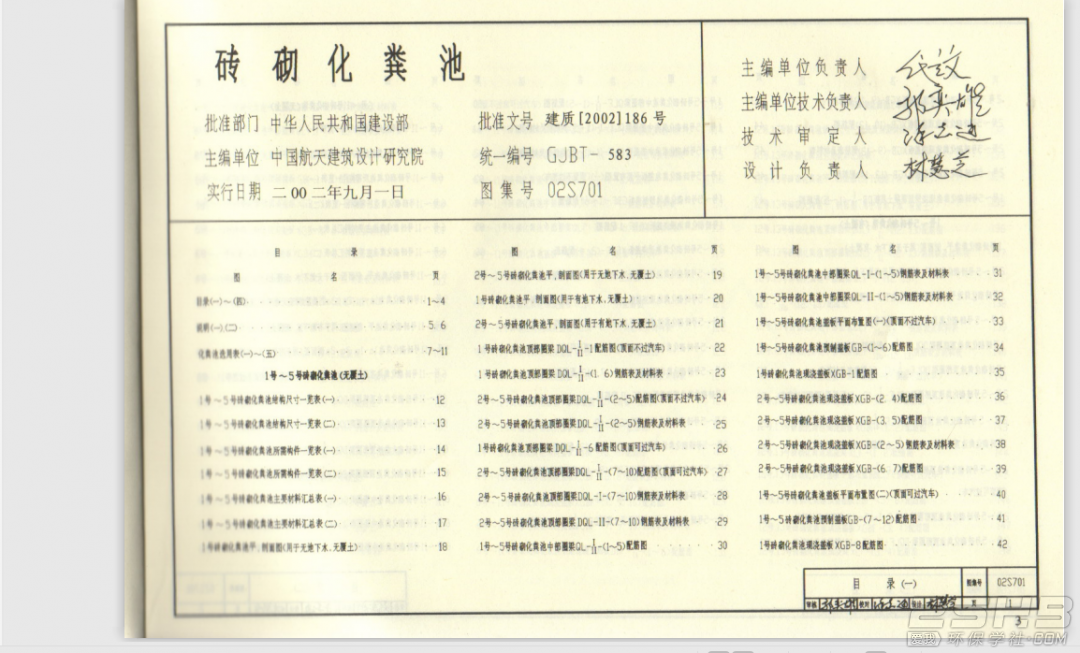 砖砌化粪池
批准部门 中华人民共和国建设部
主编单位 中国航天建筑设计研究院
实行日期 二00二年九月一日
批准文号 建质[2002]186号
统一编号 GJBT-583
图集号 02S701
主编单位负责人
主编单位技术负责人
技术审定人
设计负责人
目 录
图 名 页
目录(一)~(四) 1~4
说明(一).(二) 5.6
化粪池选用表(一)~(五) 7~11
1号~5号砖砌化粪池(无覆土)
1号~5号砖砌化粪池结构尺寸一览表(一) 12
1号~5号砖砌化粪池结构尺寸一览表(二) 13
1号~5号砖砌化粪池所需构件一览表(一) 14
1号~5号砖砌化粪池所需构件一览表(二) 15
1号~5号砖砌化粪池主要材料汇总表(一) 16
1号~5号砖砌化粪池主要材料汇总表(二) 17
1号砖砌化粪池平.剖面图(用于无地下水.无覆土) 18
图 名 页
2号~5号砖砌化粪池平.剖面图(用于无地下水.无覆土) 19
1号砖砌化粪池平.剖面图(用于有地下水.无覆土) 20
2号~5号砖砌化粪池平.剖面图(用于有地下水.无覆土) 21
1号砖砌化粪池顶部圈梁DQL-I/II-1配筋图(顶面不过汽车) 22
1号砖砌化粪池顶部圈梁DQL-I/II-(1.6)钢筋表及材料表 23
2号~5号砖砌化粪池顶部圈梁DQL-I/II-(2~5)配筋图(顶面不过汽车) 24
2号~5号砖砌化粪池顶部圈梁DQL-I/II-(2~5)钢筋表及材料表 25
1号砖砌化粪池顶部圈梁DQL-I/II-6配筋图(顶面可过汽车) 26
2号~5号砖砌化粪池顶部圈梁DQL-I/II-(7~10)配筋图(顶面可过汽车) 27
2号~5号砖砌化粪池顶部圈梁DQL-I-(7~10)钢筋表及材料表 28
2号~5号砖砌化粪池顶部圈梁DQL-II-(7~10)钢筋表及材料表 29
1号~5号砖砌化粪池中部圈梁QL-I/II-(1~5)配筋图 30
图 名 页
1号~5号砖砌化粪池中部圈梁QL-I-(1~5)钢筋表及材料表 31
1号~5号砖砌化粪池中部圈梁QL-II-(1~5)钢筋表及材料表 32
1号~5号砖砌化粪池盖板平面布置图(一)(顶面不过汽车) 33
1号~5号砖砌化粪池预制盖板GB-(1~6)配筋图 34
1号砖砌化粪池现浇盖板XGB-1配筋图 35
2号~5号砖砌化粪池现浇盖板XGB-(2.4)配筋图 36
2号~5号砖砌化粪池现浇盖板XGB-(3.5)配筋图 37
2号~5号砖砌化粪池现浇盖板XGB-(2~5)钢筋表及材料表 38
2号~5号砖砌化粪池现浇盖板XGB-(6.7)配筋图 39
1号~5号砖砌化粪池盖板平面布置图(二)(顶面可过汽车) 40
1号~5号砖砌化粪池预制盖板GB-(7~12)配筋图 41
1号砖砌化粪池现浇盖板XGB-8配筋图 42
目 录(一) 图集号 02S701
审核 校对 设计 页 1
3
环保学社.COM